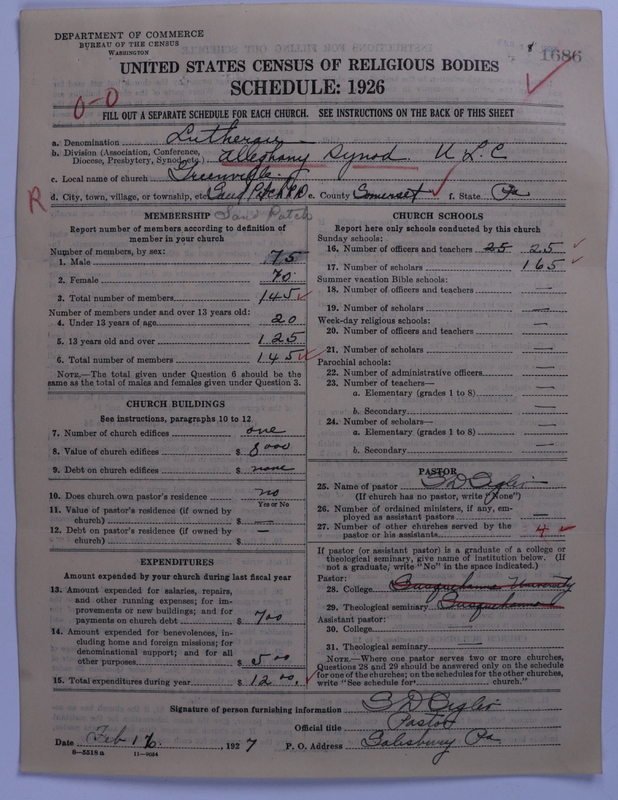 DEPARTMENT OF COMMERCE
BUREAU OF THE CENSUS
WASHINGTON
1686
UNITED STATES CENSUS OF RELIGIOUS BODIES
SCHEDULE: 1926
0-0
FILL OUT A SEPARATE SCHEDULE FOR EACH CHURCH. SEE INSTRUCTIONS ON THE BACK OF THIS SHEET
a. Denomination Lutheran
b. Division (Association, Conference, Diocese, Presbytery, Synod, etc.) Alleghany Synod. U L C
c. Local name of church Greenville
R d. City, town, village, or township, etc. e. County Somerset f. State Pa
Sand Patch
MEMBERSHIP
Report number of members according to definition of
member in your church
Number of members, by sex:
1. Male 75
2. Female 70
3. Total number of members 145
Number of members under and over 13 years old:
4. Under 13 years of age 20
5. 13 years old and over 125
6. Total number of members 145
NOTE.—The total given under Question 6 should be
same as the total of males and females given under Question 3.
CHURCH BUILDINGS
See instructions, paragraphs 10 to 12
7. Number of church edifices one
8. Value of church edifices $ 8000
9. Debt on church edifices $ none
10. Does church own pastor's residence no
Yes or No
11. Value of pastor's residence (if owned by
church) $ —
12. Debt on pastor's residence (if owned by
church) $ —
EXPENDITURES
Amount expended by your church during last fiscal year
13. Amount expended for salaries, repairs,
and other running expenses; for im-
provements or new buildings; and for
payments on church debt $ 700
14. Amount expended for benevolences, in-
cluding home and foreign missions; for
denominational support; and for all
other purposes $ 500
15. Total expenditures during year $ 1200.
CHURCH SCHOOLS
Report here only schools conducted by this church
Sunday schools:
16. Number of officers and teachers 25 25
17. Number of scholars 165
Summer vacation Bible schools:
18. Number of officers and teachers —
19. Number of scholars —
Week-day religious schools:
20. Number of officers and teachers —
21. Number of scholars —
Parochial schools:
22. Number of administrative officers —
23. Number of teachers—
a. Elementary (grades 1 to 8) —
b. Secondary —
24. Number of scholars—
a. Elementary (grades 1 to 8) —
b. Secondary —
PASTOR
25. Name of pastor
(If church has no pastor, write "None")
26. Number of ordained ministers, if any, em-
ployed as assistant pastors —
27. Number of other churches served by the
pastor or his assistants 4
If pastor (or assistant pastor) is a graduate of a college or
theological seminary, give name of institution below. (If
not a graduate, write "No" in the space indicated.)
Pastor:
28. College Susquehanna University
29. Theological seminary Susquehanna
Assistant pastor:
30. College
31. Theological seminary —
NOTE.—Where one pastor serves two or more churches,
Questions 28 and 29 should be answered only on the schedule
for one of the churches; on the schedules for the other churches,
write "See schedule for church."
Signature of person furnishing information
Official title Pastor
Date Feb 16, 1927 P. O. Address Salisbury Pa
8—5518a 11—9034